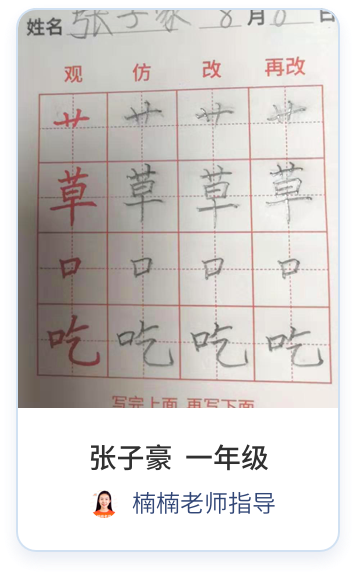 姓名 张子豪 8月6日
观 仿 改 再改
艹 艹 艹 艹
草 草 草 草
口 口 口 口
吃 吃 吃 吃
写完上面 再写下面
张子豪 一年级
楠楠老师指导